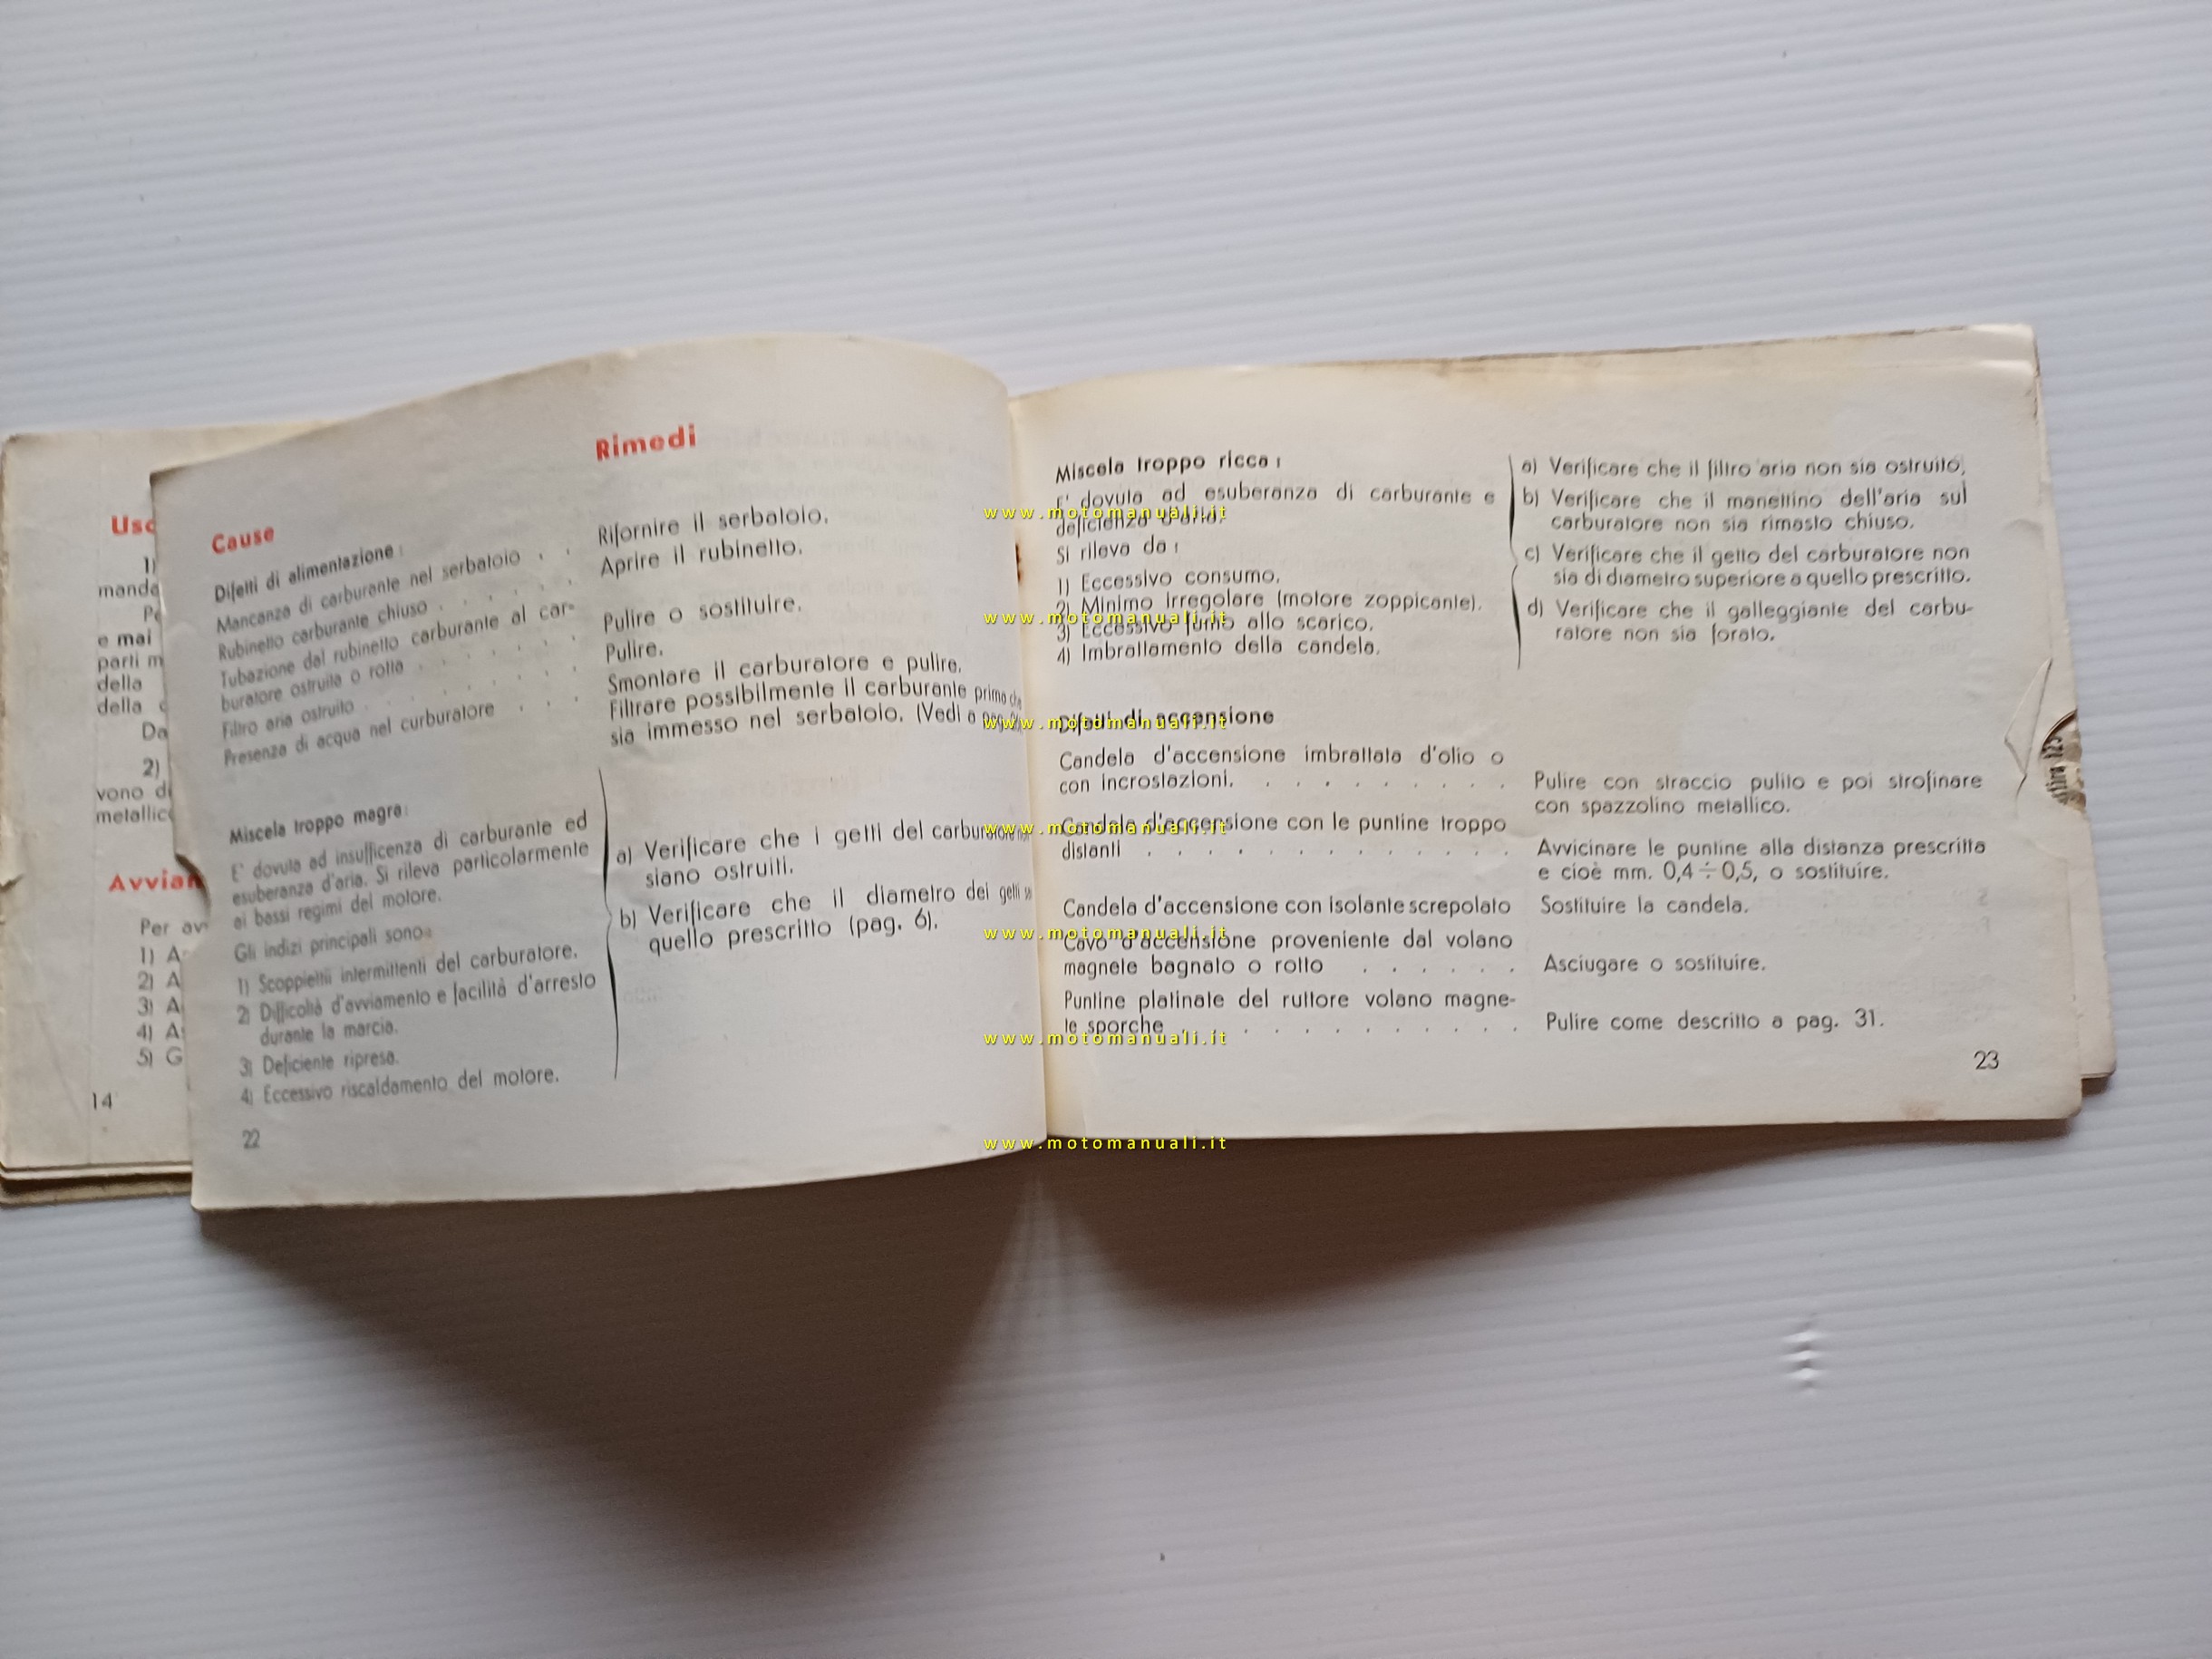 Usc
1)
manda
Pe
e mai
parti m
della
della c
Da
2)
vono di
metallic
Avvian
Per av
1) A
2) A
3) A
4) A
5) G
14
Cause
Difetti di alimentazione:
Mancanza di carburante nel serbatoio . .
Rubinetto carburante chiuso . . . . .
Tubazione dal rubinetto carburante al car-
buratore ostruita o rotta . . . . . .
Filtro aria ostruito . . . . . . . .
Presenza di acqua nel curburatore . . .
Miscela troppo magra:
E' dovuta ad insufficenza di carburante ed
esuberanza d'aria. Si rileva particolarmente
ai bassi regimi del motore.
Gli indizi principali sono:
1) Scoppiettii intermittenti del carburatore.
2) Difficoltà d'avviamento e facilità d'arresto
durante la marcia.
3) Deficiente ripresa.
4) Eccessivo riscaldamento del motore.
22
Rimedi
Rifornire il serbatoio.
Aprire il rubinetto.
Pulire o sostituire.
Pulire.
Smontare il carburatore e pulire.
Filtrare possibilmente il carburante prima che
sia immesso nel serbatoio. (Vedi a
a) Verificare che i getti del carburatore non
siano ostruiti.
b) Verificare che il diametro dei getti
quello prescritto (pag. 6).
Miscela troppo ricca:
E' dovuta ad esuberanza di carburante e
deficienza d'aria.
Si rileva da:
1) Eccessivo consumo.
2) Minimo irregolare (motore zoppicante).
3) Eccessivo fumo allo scarico.
4) Imbrattamento della candela.
a) Verificare che il filtro aria non sia ostruito.
b) Verificare che il manettino dell'aria sul
carburatore non sia rimasto chiuso.
c) Verificare che il getto del carburatore non
sia di diametro superiore a quello prescritto.
d) Verificare che il galleggiante del carbu-
ratore non sia forato.
Difetti di accensione
Candela d'accensione imbrattata d'olio o
con incrostazioni. . . . . . . . . .
Pulire con straccio pulito e poi strofinare
con spazzolino metallico.
Candela d'accensione con le puntine troppo
distanti . . . . . . . . . . . . .
Avvicinare le puntine alla distanza prescritta
e cioè mm. 0,4 ÷ 0,5, o sostituire.
Candela d'accensione con isolante screpolato
Sostituire la candela.
Cavo d'accensione proveniente dal volano
magnete bagnato o rotto . . . . . .
Asciugare o sostituire.
Puntine platinate del ruttore volano magne-
te sporche . . . . . . . . . . . .
Pulire come descritto a pag. 31.
23
www.motomanuali.it
www.motomanuali.it
www.motomanuali.it
www.motomanuali.it
www.motomanuali.it
www.motomanuali.it
www.motomanuali.it